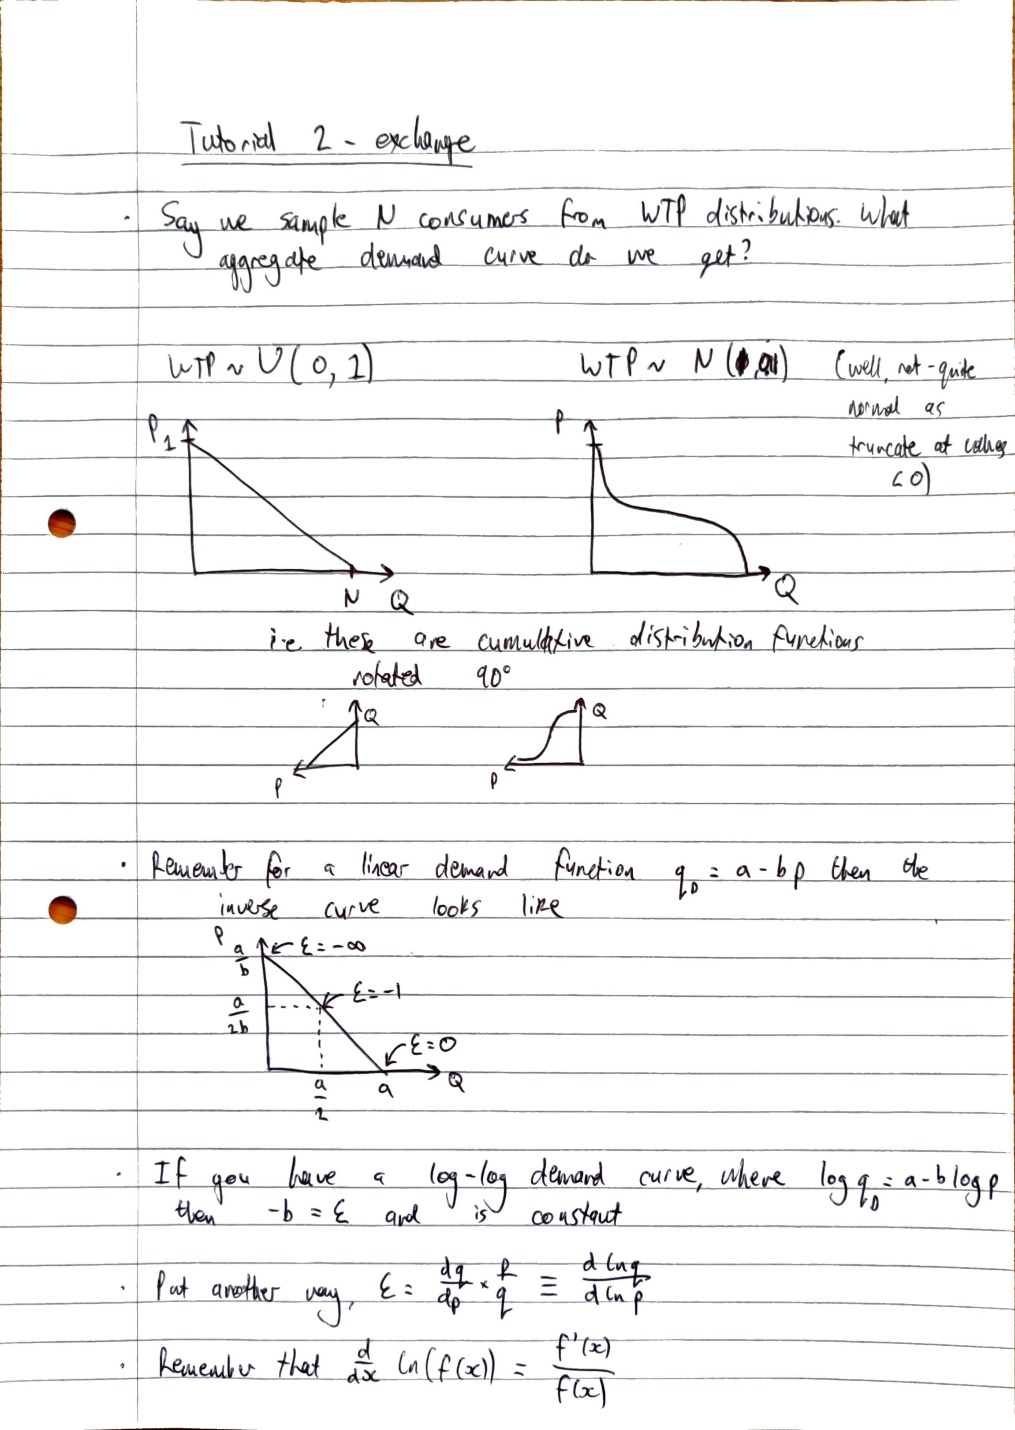 Tutorial 2 - exchange
· Say we sample N consumers from WTP distributions. What
aggregate demand curve do we get?
WTP ~ U(0, 1)
WTP ~ N( ) (well, not-quite
normal as
truncate at values
<0)
P
1
N Q
P
Q
i.e. these are cumulative distribution functions
rotated 90°
Q
P
Q
P
· Remember for a linear demand function q_D = a - bp then the
inverse curve looks like
P
a/b
ε = -∞
a/2b
ε = -1
ε = 0
a/2
a
Q
· If you have a log-log demand curve, where log q_D = a - b log p
then -b = ε and is constant
· Put another way, ε = dq/dp × p/q ≡ d ln q/d ln p
· Remember that d/dx ln(f(x)) = f'(x)/f(x)